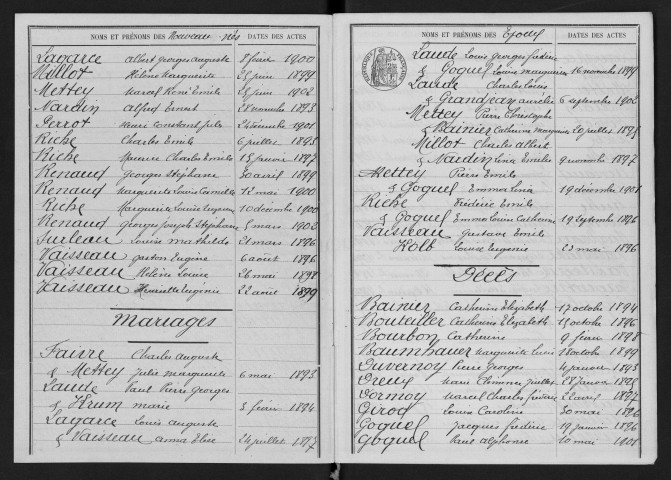 NOMS ET PRÉNOMS DES Nouveau-nés DATES DES ACTES
Lagarce Albert Georges Auguste 8 février 1900
Millot Hélène Marguerite 25 juin 1899
Mettey Marcel René Emile 25 juin 1902
Nardin Alfred Ernest 28 novembre 1893
Perrot Henri Constant Jules 1901
Riche Charles Emile 6 juillet 1895
Riche Maurice Charles Emile 15 janvier 1897
Renaud Georges Stéphane 30 avril 1899
Renaud Marguerite Louise 12 mai 1900
Riche Marguerite Louise Eugénie 10 décembre 1900
Renaud Georges Joseph Stéphane 5 mars 1902
Surleau Louise Mathilde 21 mars 1896
Vaisseau Gaston Eugène 6 août 1896
Vaisseau Hélène Louise 26 mai 1898
Vaisseau Henriette Eugénie 22 août 1899
Mariages
Faivre Charles Auguste
& Mettey Julie Marguerite 6 mai 1893
Laude Paul Pierre Georges
& Krum Marie 5 févr 1894
Lagarce Louis Auguste
& Vaisseau Anna Elise 24 juillet 1897
NOMS ET PRÉNOMS DES Epoux DATES DES ACTES
Laude Louis Georges Frédéric
& Goguel Louise Marguerite 16 novembre 1899
Laude Charles Louis
& Grandjean Aurélie 6 septembre 1902
Mettey Pierre Christophe
& Bainier Catherine Marguerite 20 juillet 1895
Millot Charles Albert
& Nardin Lina Emilie 9 novembre 1897
Mettey Pierre Emile
& Goguel Emma Lina 19 décembre 1901
Riche Frédéric Emile
& Goguel Emma Louise Catherine 19 septembre 1896
Vaisseau Gustave Emile
Kolb Louise Eugénie 23 mai 1896
Décès
Bainier Catherine Elizabeth 17 octobre 1894
Bouteiller Catherine Elizabeth 15 octobre 1896
Bourbon Catherine 9 févr 1898
Baumhauer Marguerite Lucie 18 octobre 1899
Duvernoy Pierre Georges 4 janvier 1895
Dreux Marie 28 janv. 1895
Dormoy Marcel Charles Frédéric 22 avril 1897
Girod Louise Caroline 30 mai 1896
Goguel Jacques Frédéric 19 janvier 1896
Goguel Paul Alphonse 10 mai 1901